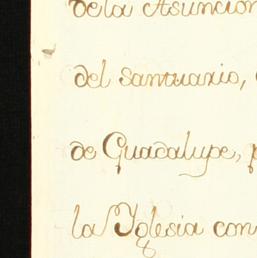 dela Asuncion
del santuario,
de Guadalupe,
la Yglesia con